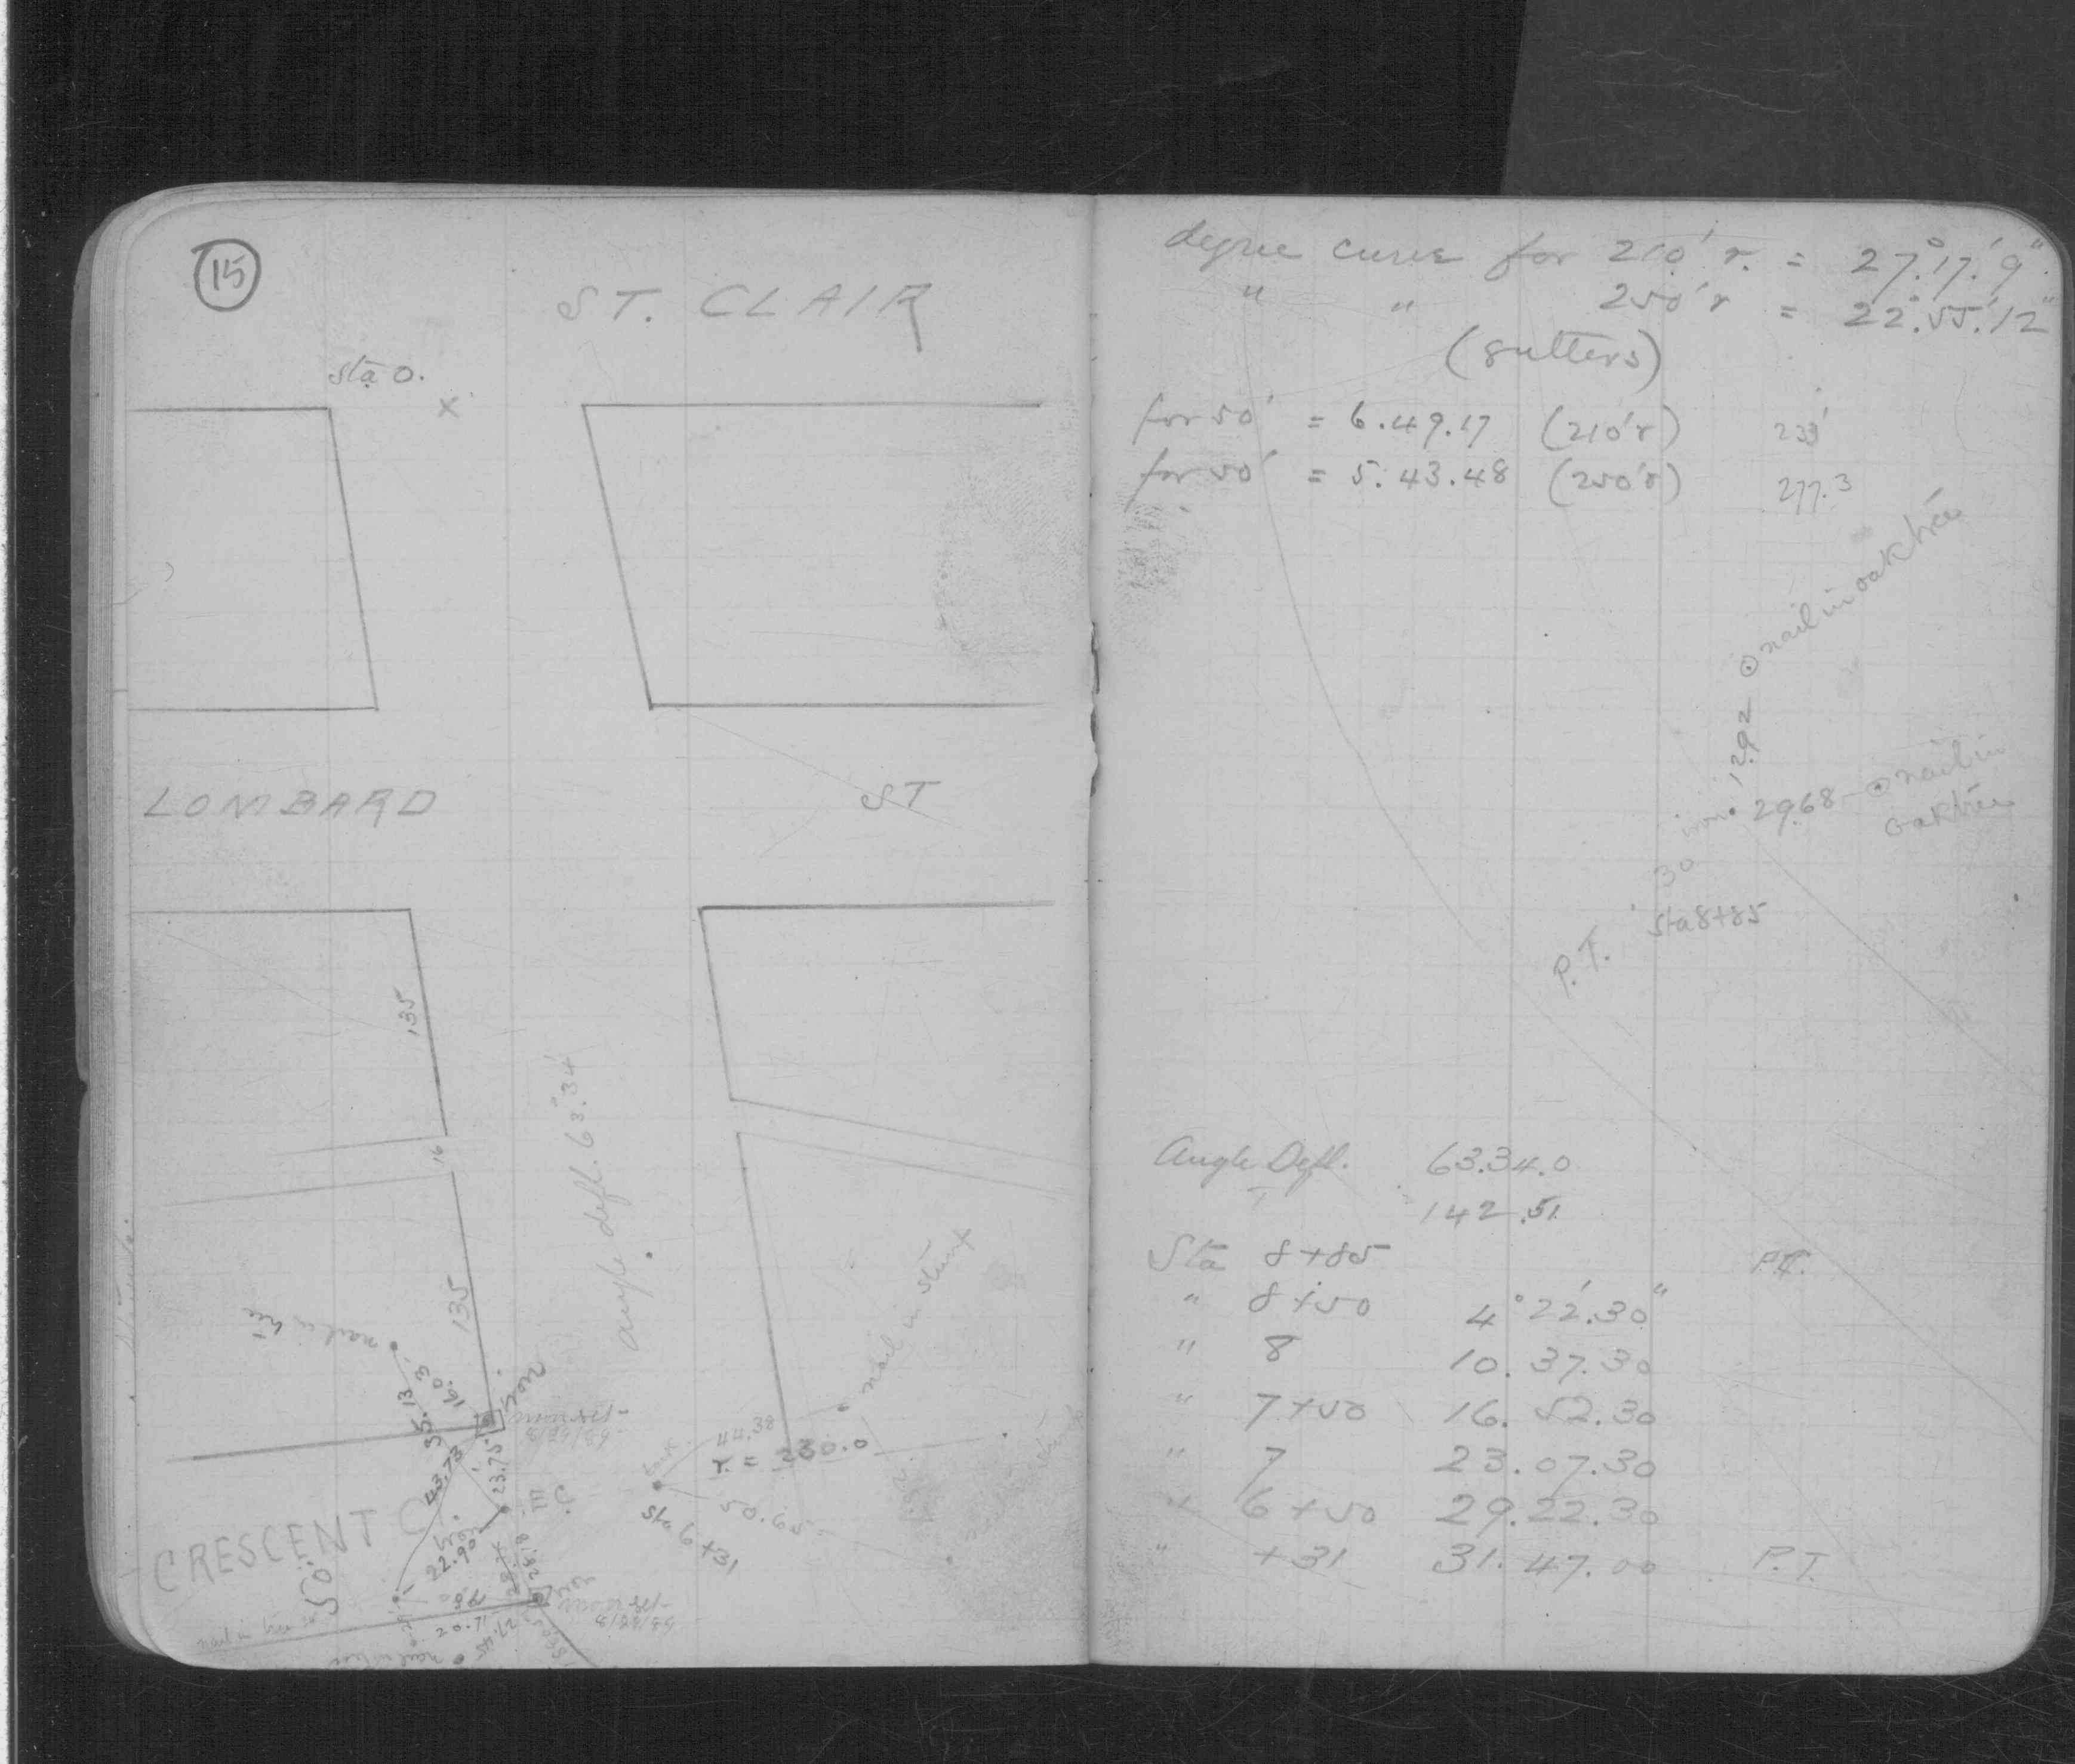 15
ST. CLAIR
Sta 0.
x
LOMBARD ST
135
16
angle defl. 63°.34'
135
nail in tree
16.03
35.13
Iron
43.73
23.75
E.C.
44.38
r. = 230.0
50.65
Sta 6+31
nail in stump
CRESCENT
50'
22.90
28.18
Iron
nail in tree
20.71
27.45
nail in tree
degree curve for 210' r. = 27°.17.'9"
" " 250' r = 22°.55.'12"
(gutters)
for 50' = 6.49.17 (210'r) 233'
for 50' = 5.43.48 (250'r) 277.3
nail in oak tree
12.92
iron 29.68 nail in
oak tree
30
Sta 8+85
P.T.
Angle Defl. 63.34.0
142.51
Sta 8+85 P.T.
" 8+50 4°22'.30"
" 8 10.37.30
" 7+50 16.52.30
" 7 23.07.30
" 6+50 29.22.30
" +31 31.47.00 P.T.